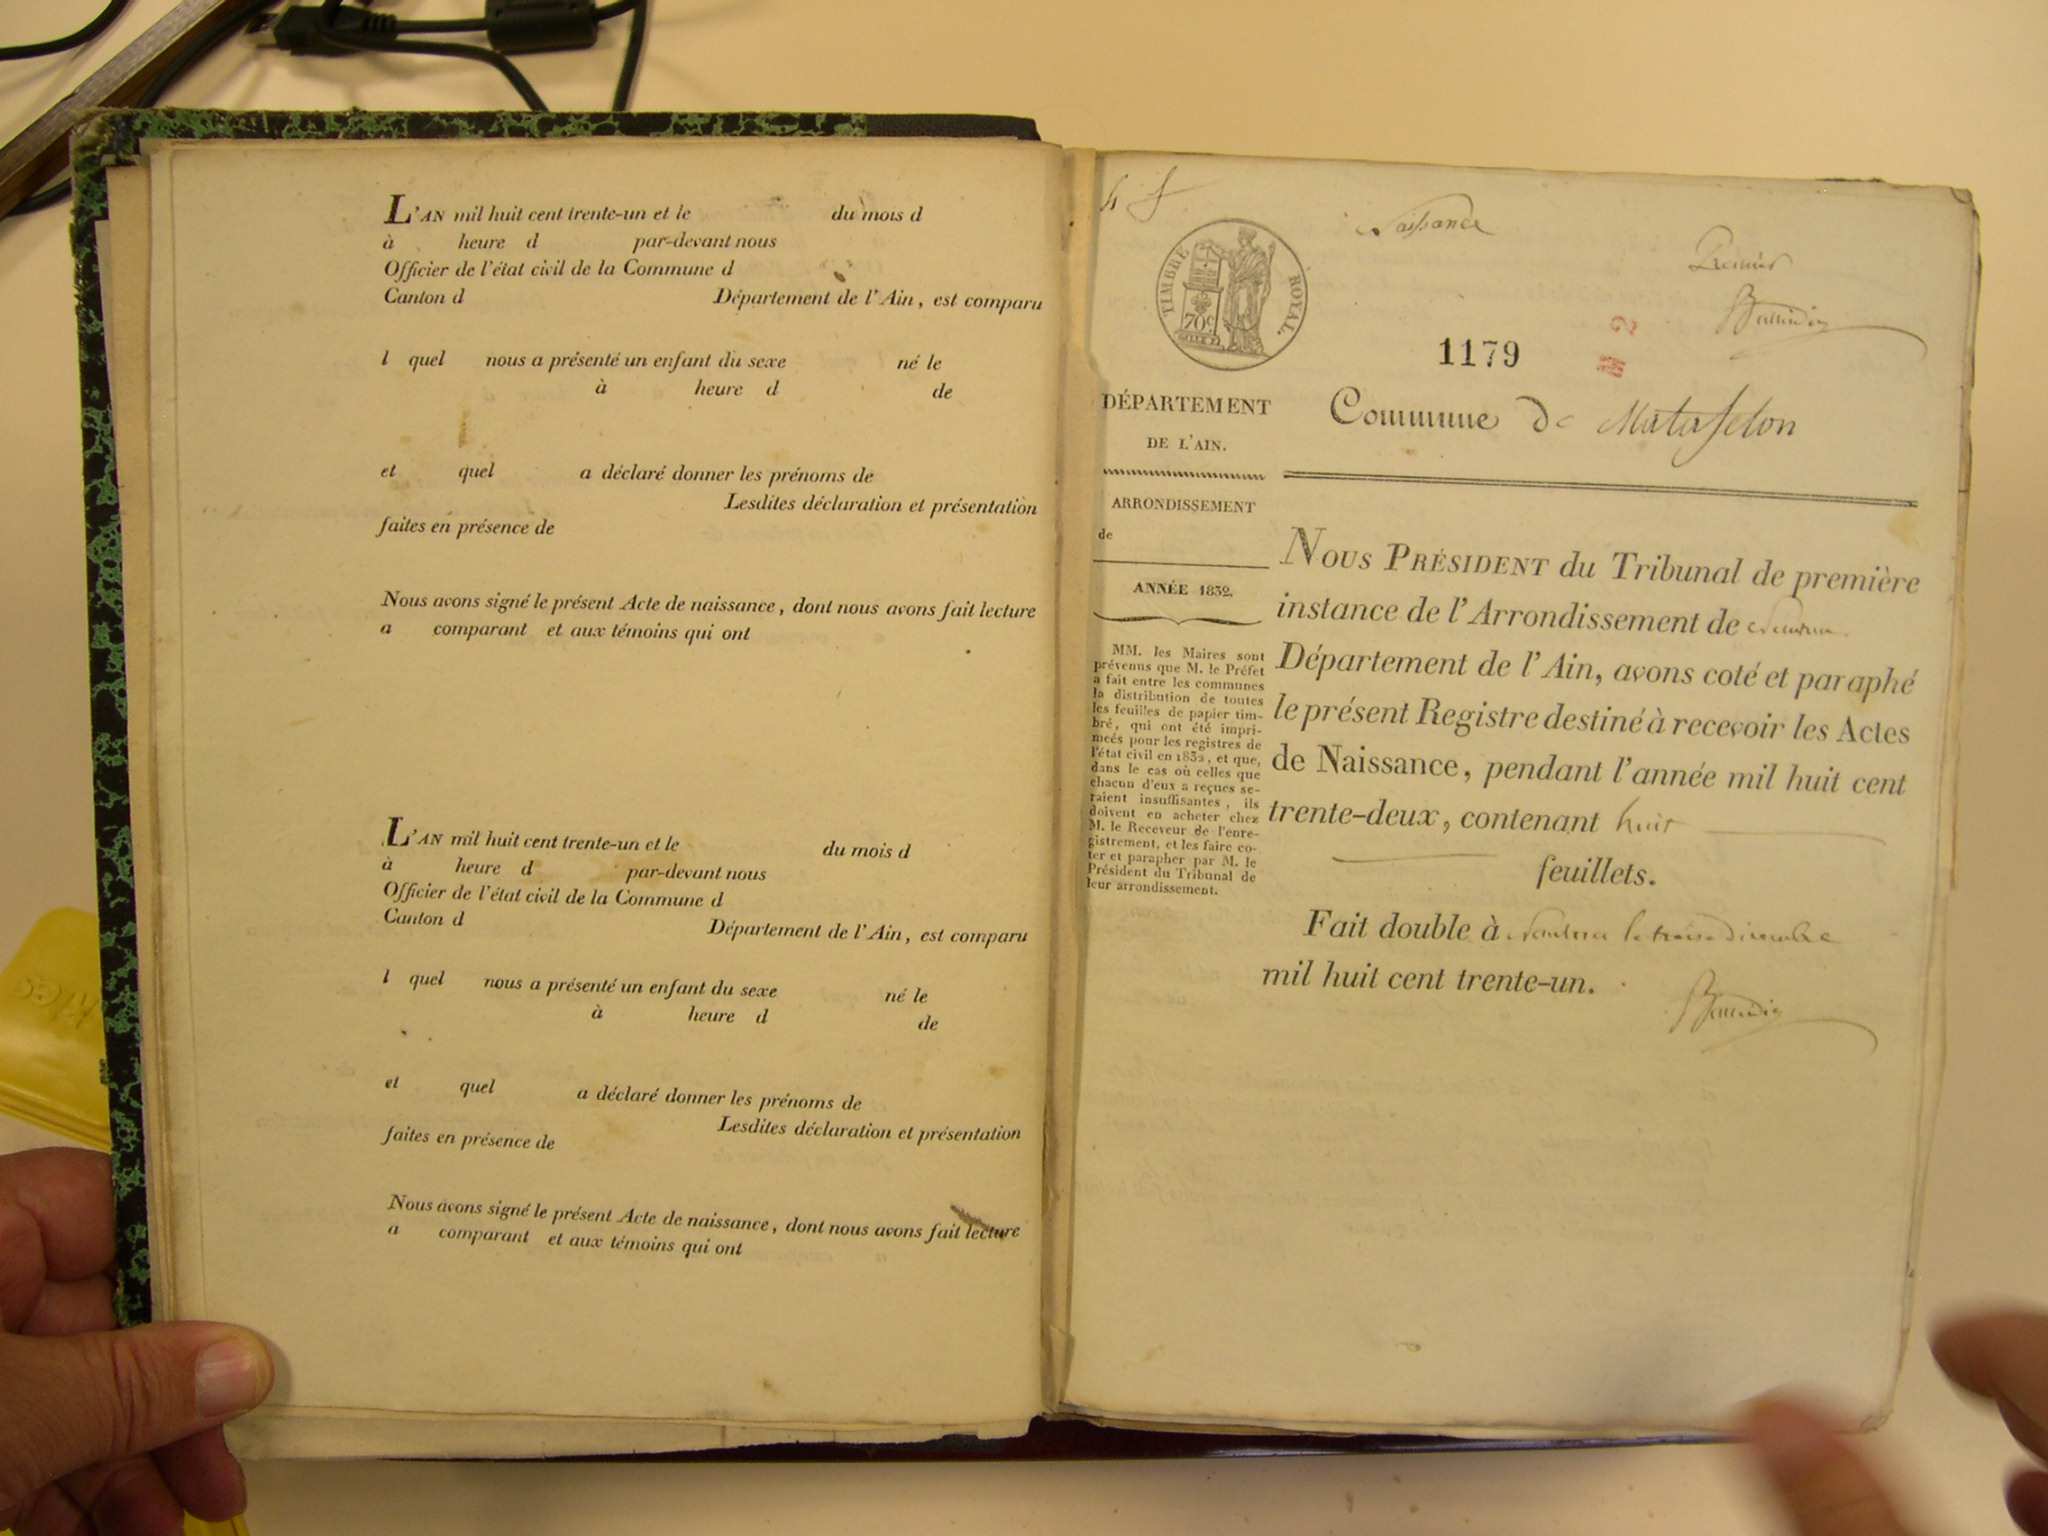 L'AN mil huit cent trente-un et le du mois d
à heure d par-devant nous
Officier de l'état civil de la Commune d
Canton d Département de l'Ain, est comparu
l quel nous a présenté un enfant du sexe né le
à heure d de
et quel a déclaré donner les prénoms de
Lesdites déclaration et présentation
faites en présence de
Nous avons signé le présent Acte de naissance, dont nous avons fait lecture
a comparant et aux témoins qui ont
L'AN mil huit cent trente-un et le du mois d
à heure d par-devant nous
Officier de l'état civil de la Commune d
Canton d Département de l'Ain, est comparu
l quel nous a présenté un enfant du sexe né le
à heure d de
et quel a déclaré donner les prénoms de
Lesdites déclaration et présentation
faites en présence de
Nous avons signé le présent Acte de naissance, dont nous avons fait lecture
a comparant et aux témoins qui ont
4 f
Naissance
Premier
TIMBRE ROYAL
70c
1179
Commune de Matafelon
DÉPARTEMENT
DE L'AIN.
ARRONDISSEMENT
de
ANNÉE 1832.
MM. les Maires sont
prévenus que M. le Préfet
a fait entre les communes
la distribution de toutes
les feuilles de papier tim-
bré, qui ont été impri-
mées pour les registres de
l'état civil en 1832, et que,
dans le cas où celles que
chacun d'eux a reçues se-
raient insuffisantes, ils
doivent en acheter chez
M. le Receveur de l'enre-
gistrement, et les faire co-
ter et parapher par M. le
Président du Tribunal de
leur arrondissement.
NOUS PRÉSIDENT du Tribunal de première
instance de l'Arrondissement de Nantua
Département de l'Ain, avons coté et paraphé
le présent Registre destiné à recevoir les Actes
de Naissance, pendant l'année mil huit cent
trente-deux, contenant huit
feuillets.
Fait double à Nantua le trois décembre
mil huit cent trente-un.